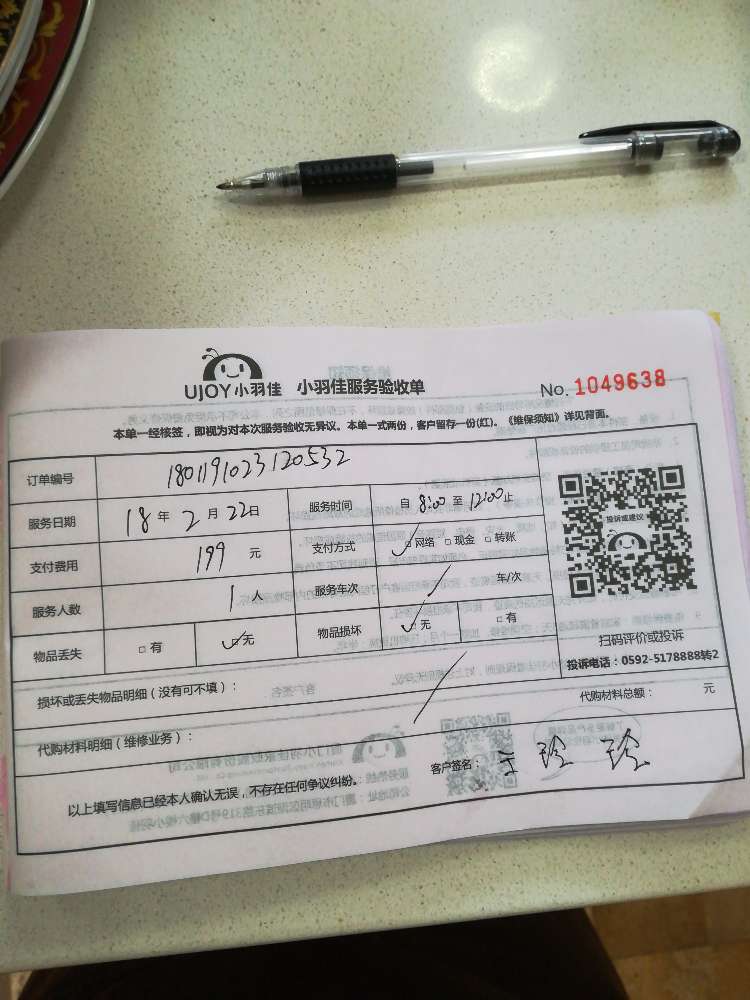 UJOY小羽佳 小羽佳服务验收单 No. 1049638
本单一经核签，即视为对本次服务验收无异议。本单一式两份，客户留存一份(红)。《维保须知》详见背面。
订单编号 1801191023120532
服务日期 18年2月22日 服务时间 自8:00至12:00止
支付费用 199元 支付方式 □网络 □现金 □转账
服务人数 1人 服务车次 / 车/次
物品丢失 □有 □无 物品损坏 □无 □有
投诉或建议
扫码评价或投诉
投诉电话：0592-5178888转2
损坏或丢失物品明细（没有可不填）：
代购材料明细（维修业务）： 代购材料总额： 元
以上填写信息已经本人确认无误，不存在任何争议纠纷。 客户签名：王珍珍